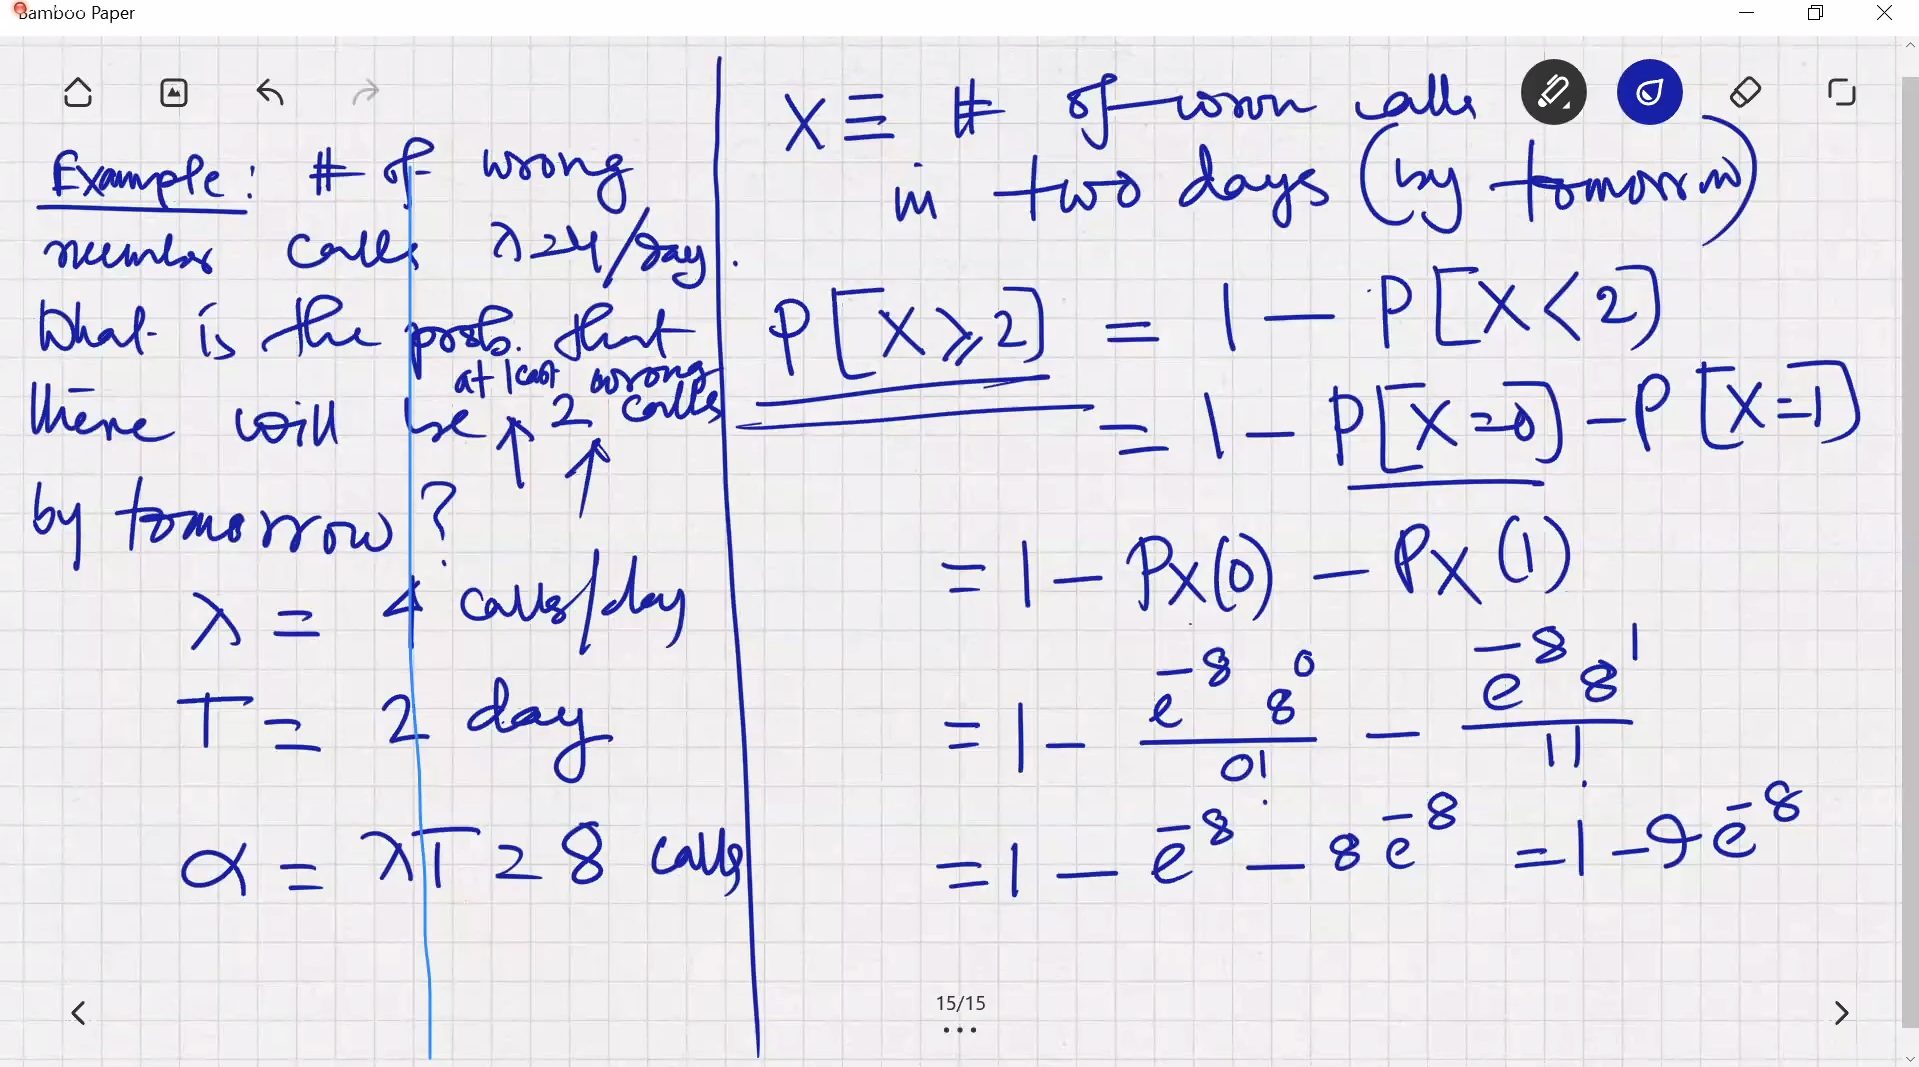 Bamboo Paper
Example: # of wrong
number calls λ=4/day.
What is the prob. that
at least wrong
there will be ↑ 2 calls
by tomorrow?
λ = 4 calls/day
T = 2 day
α = λT = 8 calls
X ≡ # of wron calls
in two days (by tomorrow)
P[X ⩾ 2] = 1 - P[X < 2]
= 1 - P[X=0] - P[X=1]
= 1 - PX(0) - PX(1)
= 1 - e^-8 8^0 / 0! - e^-8 8^1 / 1!
= 1 - e^-8 - 8 e^-8 = 1 - 9 e^-8
15/15